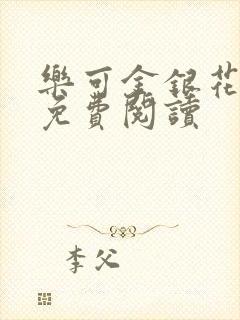 樂可金銀花
免費閱讀
李父